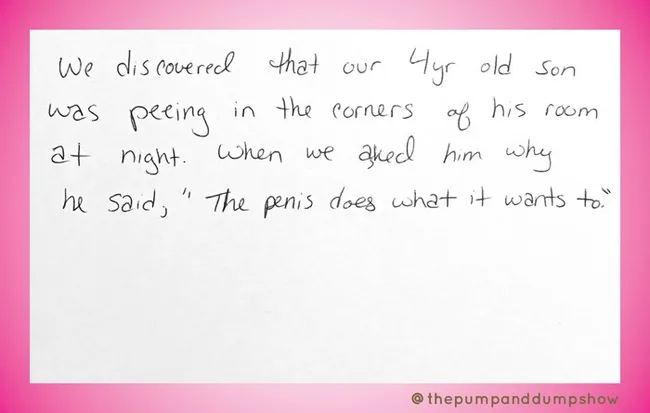 We discovered that our 4yr old son
was peeing in the corners of his room
at night. When we aked him why
he said, "The penis does what it wants to."
@thepumpanddumpshow